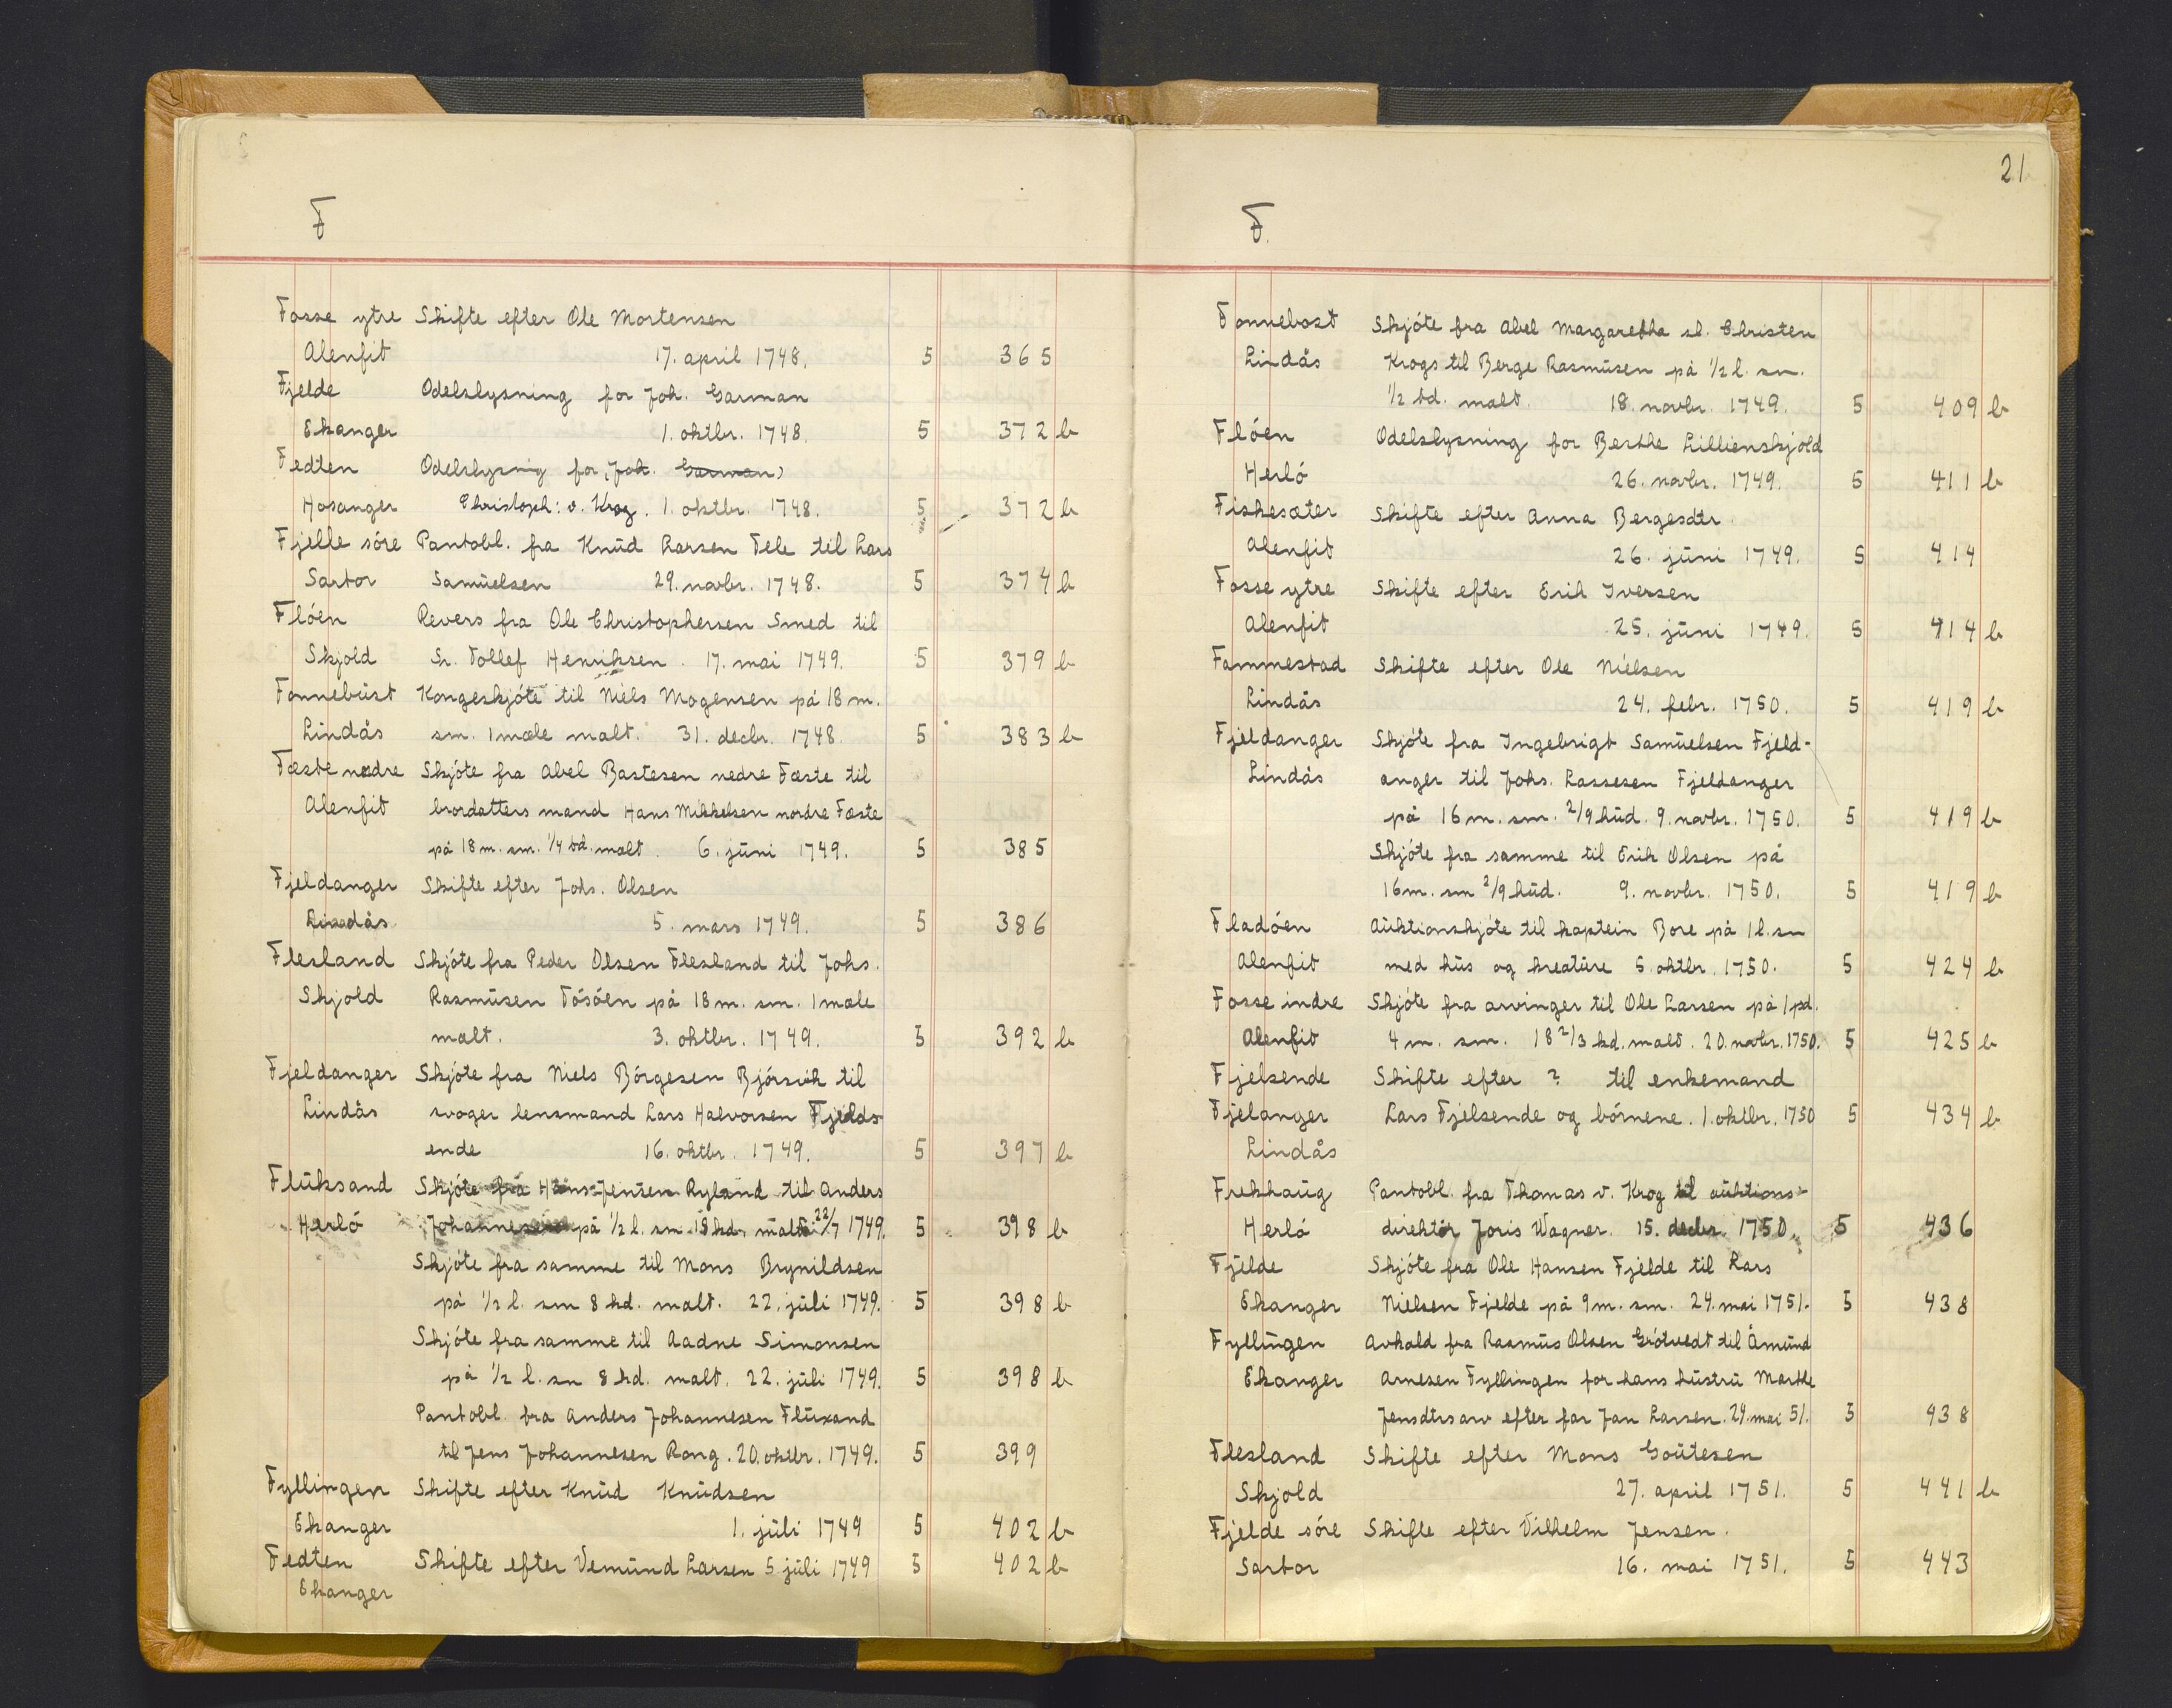 F
Fosse ytre Skifte efter Ole Mortensen
Alenfit 17. april 1748. 5 365
Fjelde Odelslysning for Joh. Garman
Ekanger 1. oktbr. 1748. 5 372 b
Fedten Odelslysnig for (Joh. Garman)
Hosanger Christoph: v. Krog. 1. oktbr. 1748. 5 372 b
Fjelle söre Pantobl. fra Knud Larsen Tele til Lars
Sartor Samuelsen 29. novbr. 1748. 5 374 b
Flóen Revers fra Ole Christophersen Smed til
Skjold Sr. Tollef Henriksen. 17. mai 1749. 5 379 b
Fonnebust Kongeskjóte til Niels Mogensen på 18 m.
Lindås sm. 1 mæle malt. 31. decbr. 1748. 5 383 b
Fæste nedre Skjóte fra Abel Bastesen nedre Fæste til
Alenfit brordatters mand Hans Mikkelsen nordre Fæste
på 18 m. sm. 1/4 td. malt. 6. juni 1749. 5 385
Fjeldanger Skifte efter Johs. Olsen
Lindås 5. mars 1749. 5 386
Flesland Skjóte fra Peder Olsen Flesland til Johs.
Skjold Rasmusen Tósóen på 18 m. sm. 1 mæle
malt. 3. oktbr. 1749. 5 392 b
Fjeldanger Skjóte fra Niels Bórgesen Bjórsvik til
Lindås svoger lensmand Lars Halvorsen Fjelds-
ende 16. oktbr. 1749. 5 397 b
Fluksand Skjóte fra Hans Jensen Ryland til Anders
Herló Johannesen på 1/2 l. sm 18 kd. malt 22/7 1749. 5 398 b
Skjóte fra samme til Mons Brynildsen
på 1/2 l. sm 8 kd. malt. 22. juli 1749. 5 398 b
Skjóte fra samme til Aadne Simonsen
på 1/2 l. sm 8 kd. malt. 22. juli 1749. 5 398 b
Pantobl. fra Anders Johannesen Fluxand
til Jens Johannesen Rong. 20. oktbr. 1749. 5 399
Fyllingen Skifte efter Knud Knudsen
Ekanger 1. juli 1749 5 402 b
Fedten Skifte efter Vemund Larsen 5. juli 1749 5 402 b
Ekanger
21
F.
Fonnebost Skjóte fra Abel Margaretha sl. Christen
Lindås Krogs til Berge Rasmusen på 1/2 l. sm.
1/2 td. malt. 18. novbr. 1749. 5 409 b
Flóen Odelslysning for Berthe Lillienskjold
Herló 26. novbr. 1749. 5 411 b
Fiskesæter Skifte efter Anna Bergesdtr.
Alenfit 26. juni 1749. 5 414
Fosse ytre Skifte efter Erik Iversen
Alenfit 25. juni 1749. 5 414 b
Fammestad Skifte efter Ole Nielsen
Lindås 24. febr. 1750. 5 419 b
Fjeldanger Skjóte fra Ingebrigt Samuelsen Fjeld-
Lindås anger til Johs. Lassesen Fjeldanger
på 16 m. sm. 2/9 hud. 9. novbr. 1750. 5 419 b
Skjóte fra samme til Erik Olsen på
16 m. sm 2/9 hud. 9. novbr. 1750. 5 419 b
Fladóen Auktionskjóte til kaptein Bore på 1 l. sm
Alenfit med hus og kreature 5. oktbr. 1750. 5 424 b
Fosse indre Skjóte fra arvinger til Ole Larsen på 1 pd.
Alenfit 4 m. sm. 18 2/3 kd. malt. 20. novbr. 1750. 5 425 b
Fjelsende Skifte efter ? til enkemand
Fjelanger Lars Fjelsende og bórnene. 1. oktbr. 1750 5 434 b
Lindås
Frekhaug Pantobl. fra Thomas v. Krog til auktions-
Herló direktór Joris Wagner. 15. decbr. 1750. 5 436
Fjelde Skjóte fra Ole Hansen Fjelde til Lars
Ekanger Nielsen Fjelde på 9 m. sm. 24. mai 1751. 5 438
Fyllingen Avkald fra Rasmus Olsen Grótvedt til Åmund
Ekanger Arnesen Fyllingen for hans hustru Marthe
Jensdtrs arv efter far Jan Larsen. 24. mai 51. 5 438
Flesland Skifte efter Mons Goutesen
Skjold 27. april 1751. 5 441 b
Fjelde sóre Skifte efter Vilhelm Jensen.
Sartor 16. mai 1751. 5 443